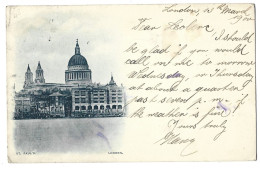 London, 5th March
Dear
I should
be glad if you would
call on me to morrow
Wednesday, or Thursday
at about a quarter
past seven p.m. if
the weather is fine
Yours truly
Harry
ST. PAUL'S. LONDON.